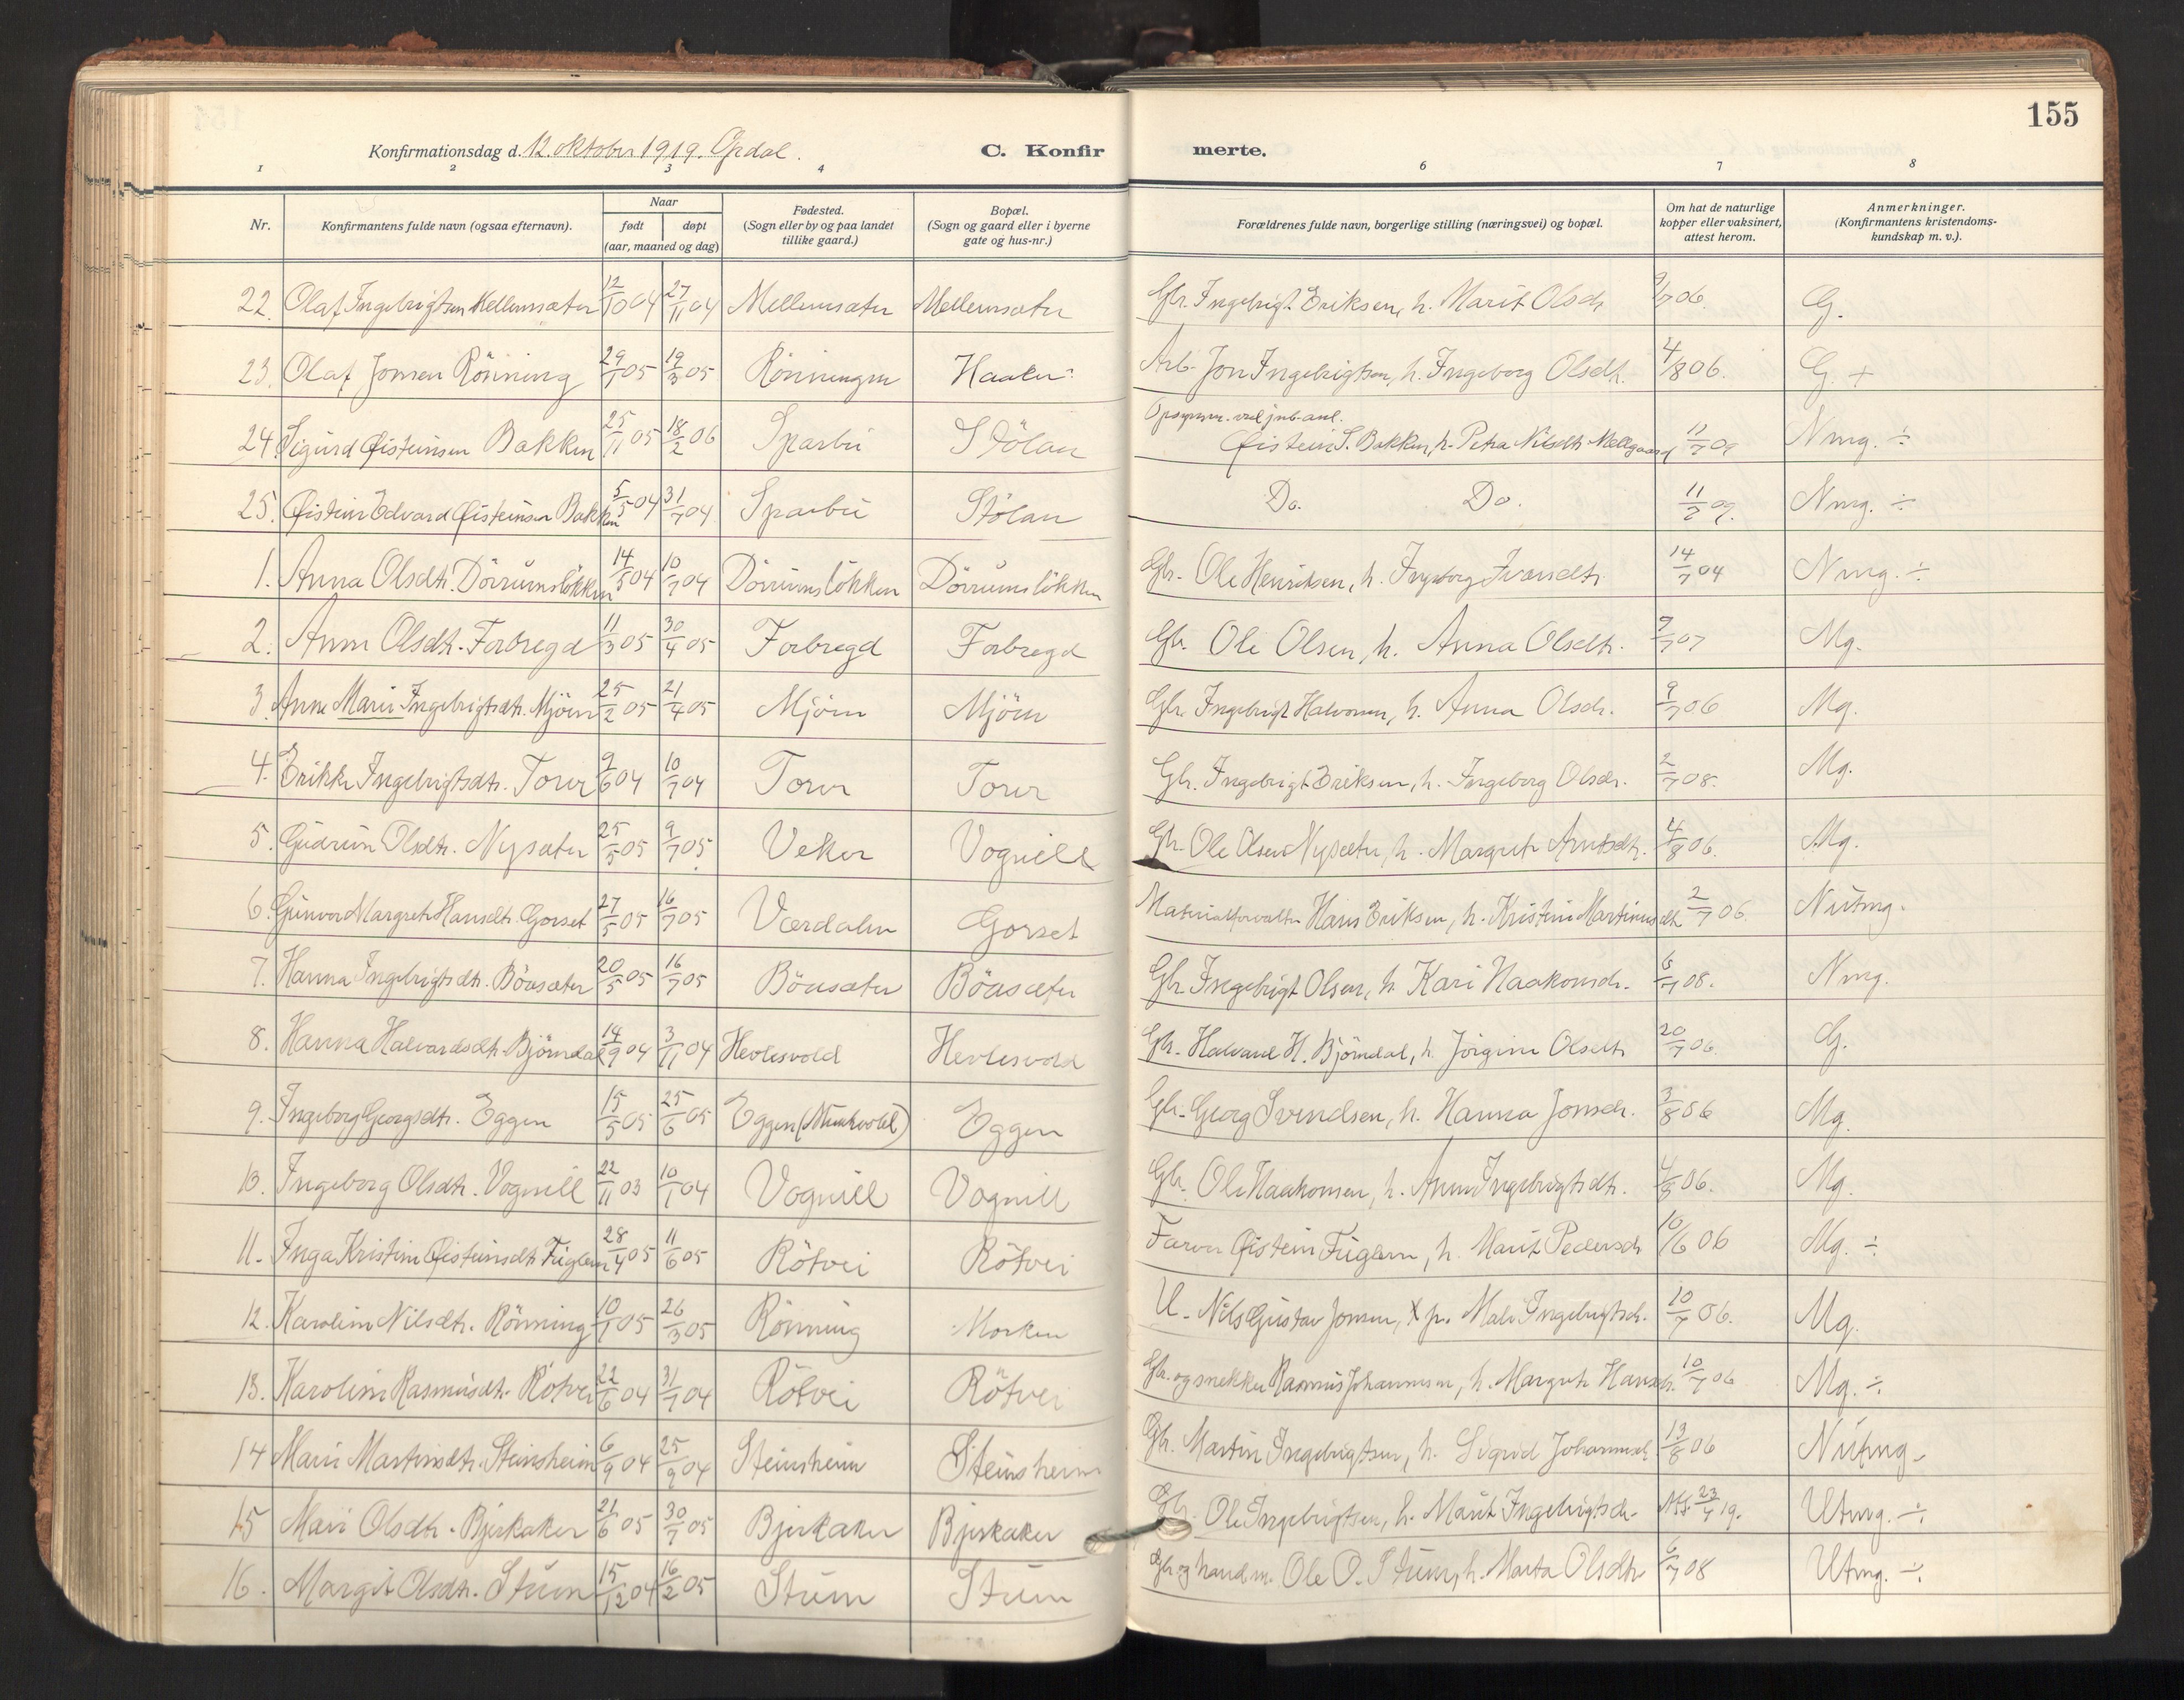 155
Konfirmationsdag d. 12. oktober 1919. Opdal. C. Konfirmerte.
1 2 3 4 6 7 8
Nr. Konfirmantens fulde navn (ogsaa efternavn). Naar født døpt (aar, maaned og dag) Fødested. (Sogn eller by og paa landet tillike gaard.) Bopæl. (Sogn og gaard eller i byerne gate og hus-nr.) Forældrenes fulde navn, borgerlige stilling (næringsvei) og bopæl. Om hat de naturlige kopper eller vaksinert, attest herom. Anmerkninger. (Konfirmantens kristendomskundskap m. v.).
22. Olaf Ingebrigtsen Mellemsæter 12/10 04 27/11 04 Mellemsæter Mellemsæter Gbr. Ingebrigt Eriksen, h. Marit Olsdr 9/7 06. G.
23. Olaf Jonsen Rönning 29/1 05 19/3 05 Rönningen Haaker Arb. Jon Ingebrigtsen, h. Ingeborg Olsdtr. 4/8 06. G. +
24. Sigurd Øisteinsen Bakken 25/11 05 18/2 06 Sparbu Stölan Opsynsm. ved jnb. anl. Øistein S. Bakken, h. Petra Nilsdtr Mellgaard 11/7 09 Nmg. ÷
25. Øistein Edvard Øisteinsen Bakken 5/5 04 31/7 04 Sparbu Stölan Do. Do. 11/7 09. Nmg. ÷
1. Anna Olsdtr. Dörrumslökken 14/5 04 10/7 04 Dörrumslökken Dörrumslökken Gbr. Ole Henriksen, h. Ingeborg Ivarsdtr. 14/7 04 Nmg. ÷
2. Anne Olsdtr. Forbregd 11/3 05 30/4 05 Forbregd Forbregd Gbr. Ole Olsen, h. Anna Olsdtr. 9/7 07 Mg.
3. Anne Marie Ingebrigtsdtr. Mjöen 25/2 05 21/4 05 Mjöen Mjöen Gbr. Ingebrigt Halvorsen, h. Anna Olsdr. 9/7 06 Mg.
4. Erikke Ingebrigtsdtr. Torve 9/6 04 10/7 04 Torve Torve Gbr. Ingebrigt Eriksen, h. Ingeborg Olsdr. 2/7 08. Mg.
5. Gudrun Olsdtr. Nysæter 25/5 05 9/7 05. Veker Vognill Gbr. Ole Olsen Nysæter, h. Margrete Arntsdtr. 4/8 06. Mg.
6. Gunvor Margrete Hansdtr. Gorset 27/5 05 16/7 05 Værdalen Gorset Materialforvalter Hans Eriksen, h. Kristine Martinusdtr 2/7 06. Nutmg.
7. Hanna Ingebrigtsdtr. Böasæter 20/5 05 16/7 05 Böasæter Böasæter Gbr. Ingebrigt Olsen, h. Kari Haakonsdr. 6/7 08. Nmg.
8. Hanna Halvardsdtr. Björndal 14/9 04 3/11 04 Hevlesvold Hevlesvold Gbr. Halvard H. Björndal, h. Jörgine Olsdtr 20/7 06. G.
9. Ingeborg Georgsdtr. Eggen 15/5 05 25/6 05 Eggen (Munkvold) Eggen Gbr. Georg Svendsen, h. Hanna Jonsdr. 3/8 06 Mg.
10. Ingeborg Olsdtr. Vognill 22/11 03 10/1 04 Vognill Vognill Gbr. Ole Haakonsen, h. Anne Ingebrigtsdtr. 4/8 06. Mg.
11. Inga Kristine Øisteinsdtr Fuglem 28/4 05 11/6 05 Rötvei Rötvei Farver Øistein Fuglem, h. Marit Pedersdr 10/6 06 Mg. ÷
12. Karoline Nilsdtr. Rönning 10/1 05 26/3 05 Rönning Morken U. Nils Gustav Jonsen, p. Mali Ingebrigtsdr. 10/7 06. Mg.
13. Karoline Rasmusdtr. Rötvei 22/6 04 31/7 04 Rötvei Rötvei Gbr. og snekker Rasmus Johannesen, h. Margrete Hansdr. 10/7 06 Mg. ÷
14 Marie Martinsdtr. Steinsheim 6/9 04 25/9 04 Steinsheim Steinsheim Gbr. Martin Ingebrigtsen, h. Sigrid Johannsdr 13/8 06 Nutmg.
15 Mari Olsdtr. Bjerkaker 21/6 05 30/7 05 Bjerkaker Bjerkaker Gbr. Ole Ingebrigtsen, h. Marit Ingebrigtsdr. 23/4 19. Utmg. ÷
16. Margit Olsdtr. Stuen 15/12 04 16/2 05 Stuen Stuen Gbr og handm. Ole O. Stuen, h. Marta Olsdtr. 6/7 08 Utmg. ÷